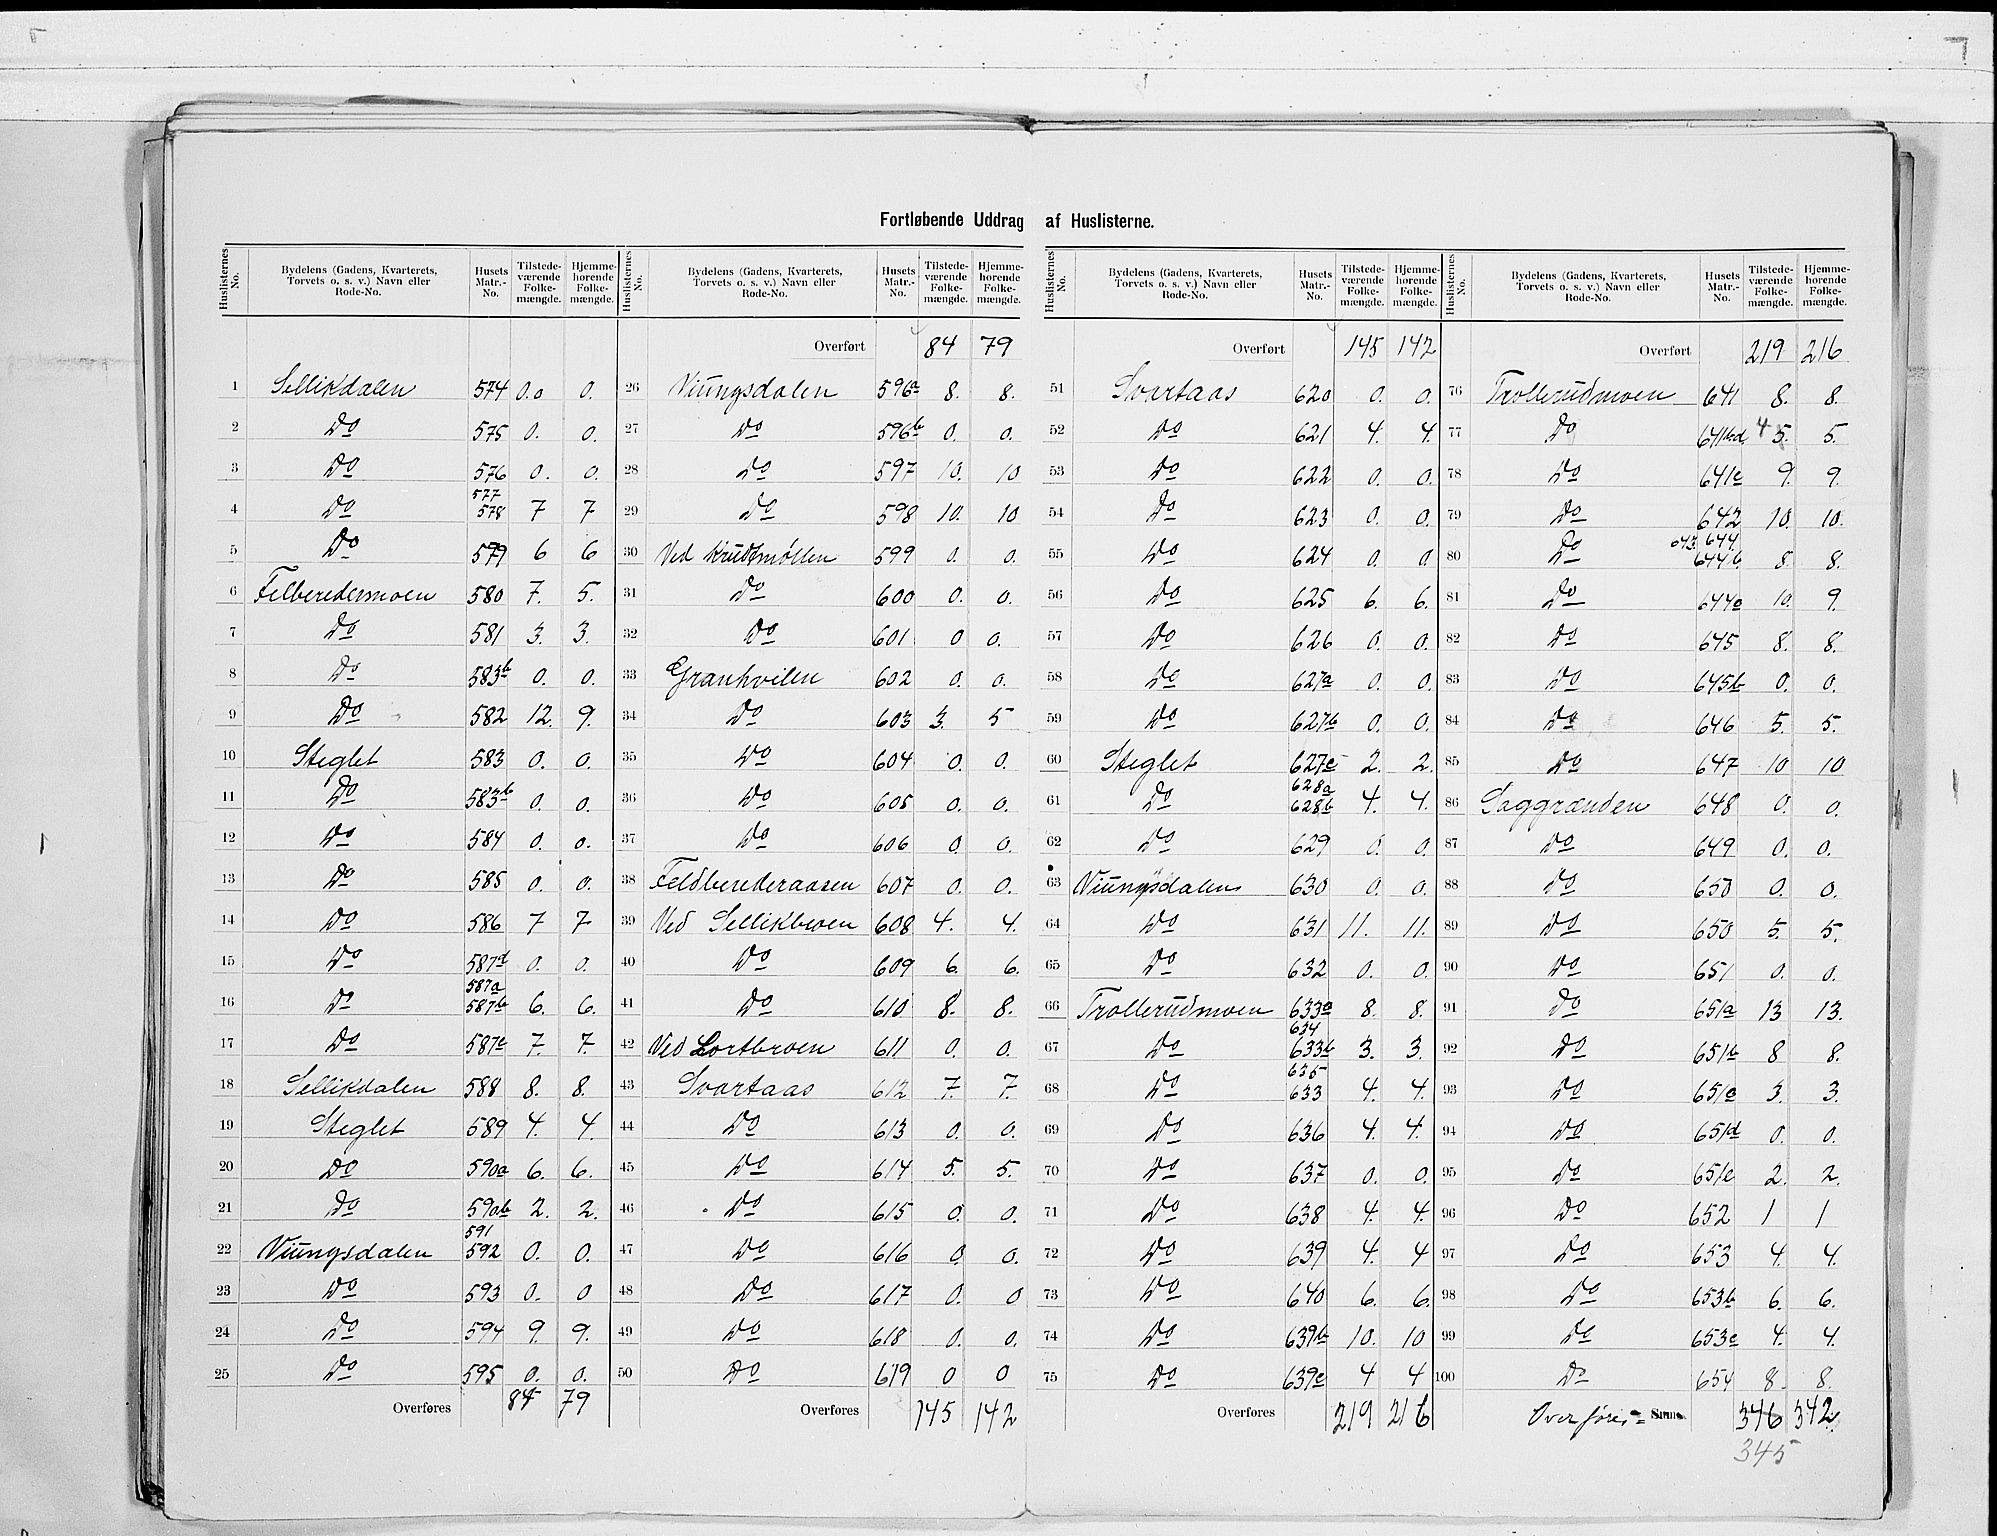 Fortløbende Uddrag af Huslisterne.
Huslisternes No. | Bydelens (Gadens, Kvarterets, Torvets o. s. v.) Navn eller Rode-No. | Husets Matr.-No. | Tilstedeværende Folkemængde. | Hjemmehørende Folkemængde.
1 Sellikdalen 574 0.0 0.
2 Do 575 0. 0.
3 Do 576 0. 0.
4 Do 577 578 7 7
5 Do 579 6 6
6 Felberedermoen 580 7. 5.
7 Do 581 3. 3.
8 Do 583b 0. 0.
9 Do 582 12. 9.
10 Steglet 583 0. 0.
11 Do 583b 0. 0.
12 Do 584 0. 0.
13 Do 585 0. 0.
14 Do 586 7 7
15 Do 587d 0. 0.
16 Do 587a 587b 6. 6.
17 Do 587c 7. 7.
18 Sellikdalen 588 8. 8.
19 Steglet 589 4. 4.
20 Do 590a 6. 6.
21 Do 590b 2. 2.
22 Viungsdalen 591 592 0. 0.
23 Do 593 0. 0
24 Do 594 9. 9.
25 Do 595 0. 0.
Overføres 84 79
Huslisternes No. | Bydelens (Gadens, Kvarterets, Torvets o. s. v.) Navn eller Rode-No. | Husets Matr.-No. | Tilstedeværende Folkemængde. | Hjemmehørende Folkemængde.
Overført 84 79
26 Viungsdalen 596a 8. 8.
27 Do 596b 0. 0.
28 Do 597 10. 10
29 Do 598 10. 10
30 Ved Krudtmøllen 599 0. 0.
31 Do 600 0. 0.
32 Do 601 0 0.
33 Granhvilen 602 0. 0.
34 Do 603 3. 5
35 Do 604 0. 0.
36 Do 605 0. 0.
37 Do 606 0. 0.
38 Feldberederaasen 607 0. 0.
39 Ved Sellikbroen 608 4. 4.
40 Do 609 6. 6.
41 Do 610 8. 8.
42 Ved Lortbroen 611 0. 0.
43 Svartaas 612 7. 7.
44 Do 613 0. 0.
45 Do 614 5. 5.
46 Do 615 0. 0.
47 Do 616 0. 0.
48 Do 617 0. 0
49 Do 618 0. 0.
50 Do 619 0 0
Overføres 145 142
Huslisternes No. | Bydelens (Gadens, Kvarterets, Torvets o. s. v.) Navn eller Rode-No. | Husets Matr.-No. | Tilstedeværende Folkemængde. | Hjemmehørende Folkemængde.
Overført 145 142
51 Svartaas 620 0. 0.
52 Do 621 4. 4.
53 Do 622 0. 0.
54 Do 623 0. 0.
55 Do 624 0. 0.
56 Do 625 6. 6.
57 Do 626 0. 0.
58 Do 627a 0. 0.
59 Do 627b 0. 0.
60 Steglet 627c 2. 2.
61 Do 628a 628b 4. 4.
62 Do 629 0. 0.
63 Viungsdalen 630 0. 0.
64 Do 631 11. 11.
65 Do 632 0. 0.
66 Trollerudmoen 633a 8. 8.
67 Do 634 633b 3. 3.
68 Do 635 633 4. 4.
69 Do 636 4. 4.
70 Do 637 0. 0.
71 Do 638 4. 4.
72 Do 639 4. 4
73 Do 640 6. 6.
74 Do 639b 10. 10
75 Do 639c 4 4
Overføres 219 216
Huslisternes No. | Bydelens (Gadens, Kvarterets, Torvets o. s. v.) Navn eller Rode-No. | Husets Matr.-No. | Tilstedeværende Folkemængde. | Hjemmehørende Folkemængde.
Overført 219 216
76 Trollerudmoen 641 8. 8.
77 Do 641bd 4 5. 5.
78 Do 641c 9. 9.
79 Do 642 10. 10.
80 Do 643 644 644b 8. 8.
81 Do 644a 10. 9.
82 Do 645 8. 8.
83 Do 645b 0. 0.
84 Do 646 5. 5.
85 Do 647 10 10
86 Saggrænden 648 0. 0.
87 Do 649 0. 0.
88 Do 650 0. 0.
89 Do 650 5. 5.
90 Do 651 0. 0.
91 Do 651a 13 13.
92 Do 651b 8 8.
93 Do 651c 3. 3.
94 Do 651d 0. 0.
95 Do 651e 2. 2.
96 Do 652 1 1
97 Do 653 4. 4.
98 Do 653b 6. 6.
99 Do 653c 4. 4.
100 Do 654 8. 8.
Overføres Sum 346 342.
345